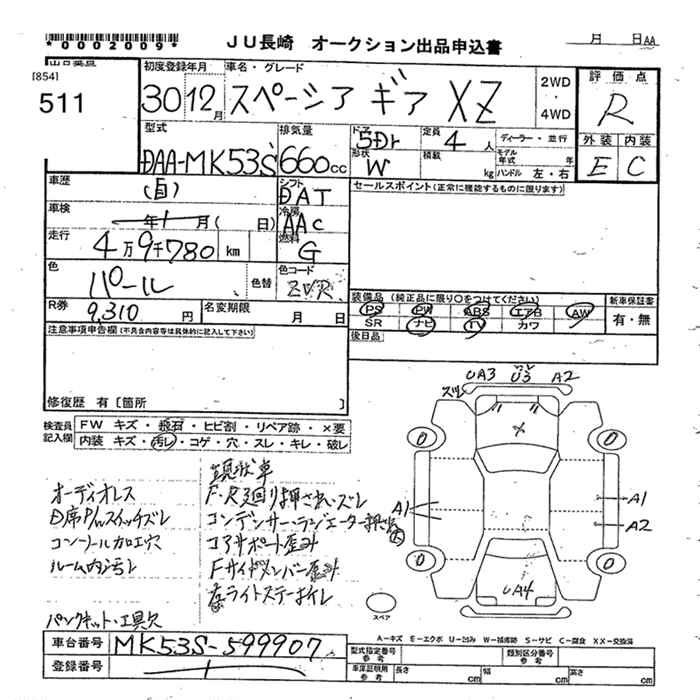 *0002009*
JU長崎 オークション出品申込書
月 日 AA
[854]
511
初度登録年月
30 12月
車名・グレード
スペーシア ギア XZ
2WD・4WD
評価点
R
型式
DAA-MK53S
排気量
660cc
ドア 5Dr
形状 W
定員 4人
積載 kg
ディーラー・並行
モデル年式 年
ハンドル 左・右
外装 内装
E C
車歴
(自)
シフト
DAT
セールスポイント(正常に機能するものに限ります)
車検
年 月( 日)
冷房
AAC
走行
4万9千780km
燃料
G
色
パール
色替
色コード
ZVR
R券
9,310円
名変期限
月 日
装備品 (純正品に限り○をつけてください)
PS PW ABS エアB AW
SR ナビ TV カワ
新車保証書
有・無
後日品
注意事項申告欄(不具合内容等は具体的に記入して下さい)
修復歴 有〔箇所 〕
検査員記入欄
FW キズ・飛石・ヒビ割・リペア跡・×要
内装 キズ・汚レ・コゲ・穴・スレ・キレ・破レ
オーディオレス
D席P/wスイッチズレ
コンソール加工穴
ルーム内汚レ
パンクキット・工具欠
現状車
F・R廻り押され・ズレ
コンデンサー・ラジエーター押され
コアサポート歪み
Fサイドメンバー歪み
左ライトステーオレ
ズレ
UA3 U3 A2
ズレ
×
0 0
A1
A1
A2
0 0
UA4
スペア
A-キズ E-エクボ U-凹み W-補修跡 S-サビ C-腐食 XX-交換済
車台番号
MK53S-599907
登録番号
型式指定番号 参考
類別区分番号 参考
車庫証明用 参考
長さ cm
幅 cm
高さ cm